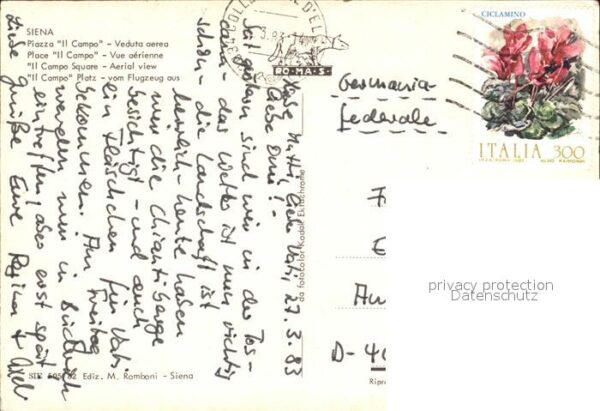 SIENA
Piazza "Il Campo" - Veduta aerea
Place "Il Campo" - Vue aérienne
"Il Campo" Square - Aerial view
"Il Campo" Platz - vom Flugzeug aus
ROMA-S.
CICLAMINO
ITALIA 300
Germania
federale
27.3.83
Liebe Mutti, lieber Vati,
liebe !-
Seit gestern sind wir in der Tos-
cana - das Wetter ist nur richtig
schön - die Landschaft ist
herrlich - heute haben
wir die Chiantiberge
besichtigt - und auch
ein Fläschchen für Vati
Am Freitag
werden wir in
eintreffen, aber erst spät
Liebe Grüße Eure Regina + Axel
da fotocolor Kodak Ektachrome
Au
D-40
privacy protection
Datenschutz
Ediz. M. Romboni - Siena
Ripro